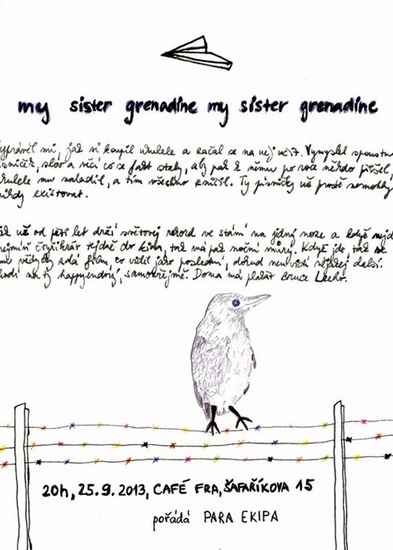 my sister grenadine my sister grenadine
vyprávěl mi, jak si koupil ukulele a začal se na něj učit. Vymyslel spoustu
písniček, slov a věcí co se fakt staly, aby pak k němu po roce někdo přišel,
ukulele mu naladil, a tím všechno zničil. Ty písničky už prostě nemohly
nikdy existovat.
už od pěti let drží světový rekord ve stání na jedný noze a když
nejmíň čtyřikrát tejdně do kina, tak má pak noční můry. Když jde
vždycky zdá film, co viděl jako poslední, dokud neuvidí nějakej další.
na ty happyendový, samozřejmě. Doma má plakát Bruce
20h, 25.9.2013, CAFÉ FRA, ŠAFAŘÍKOVA 15
pořádá PARA EKIPA